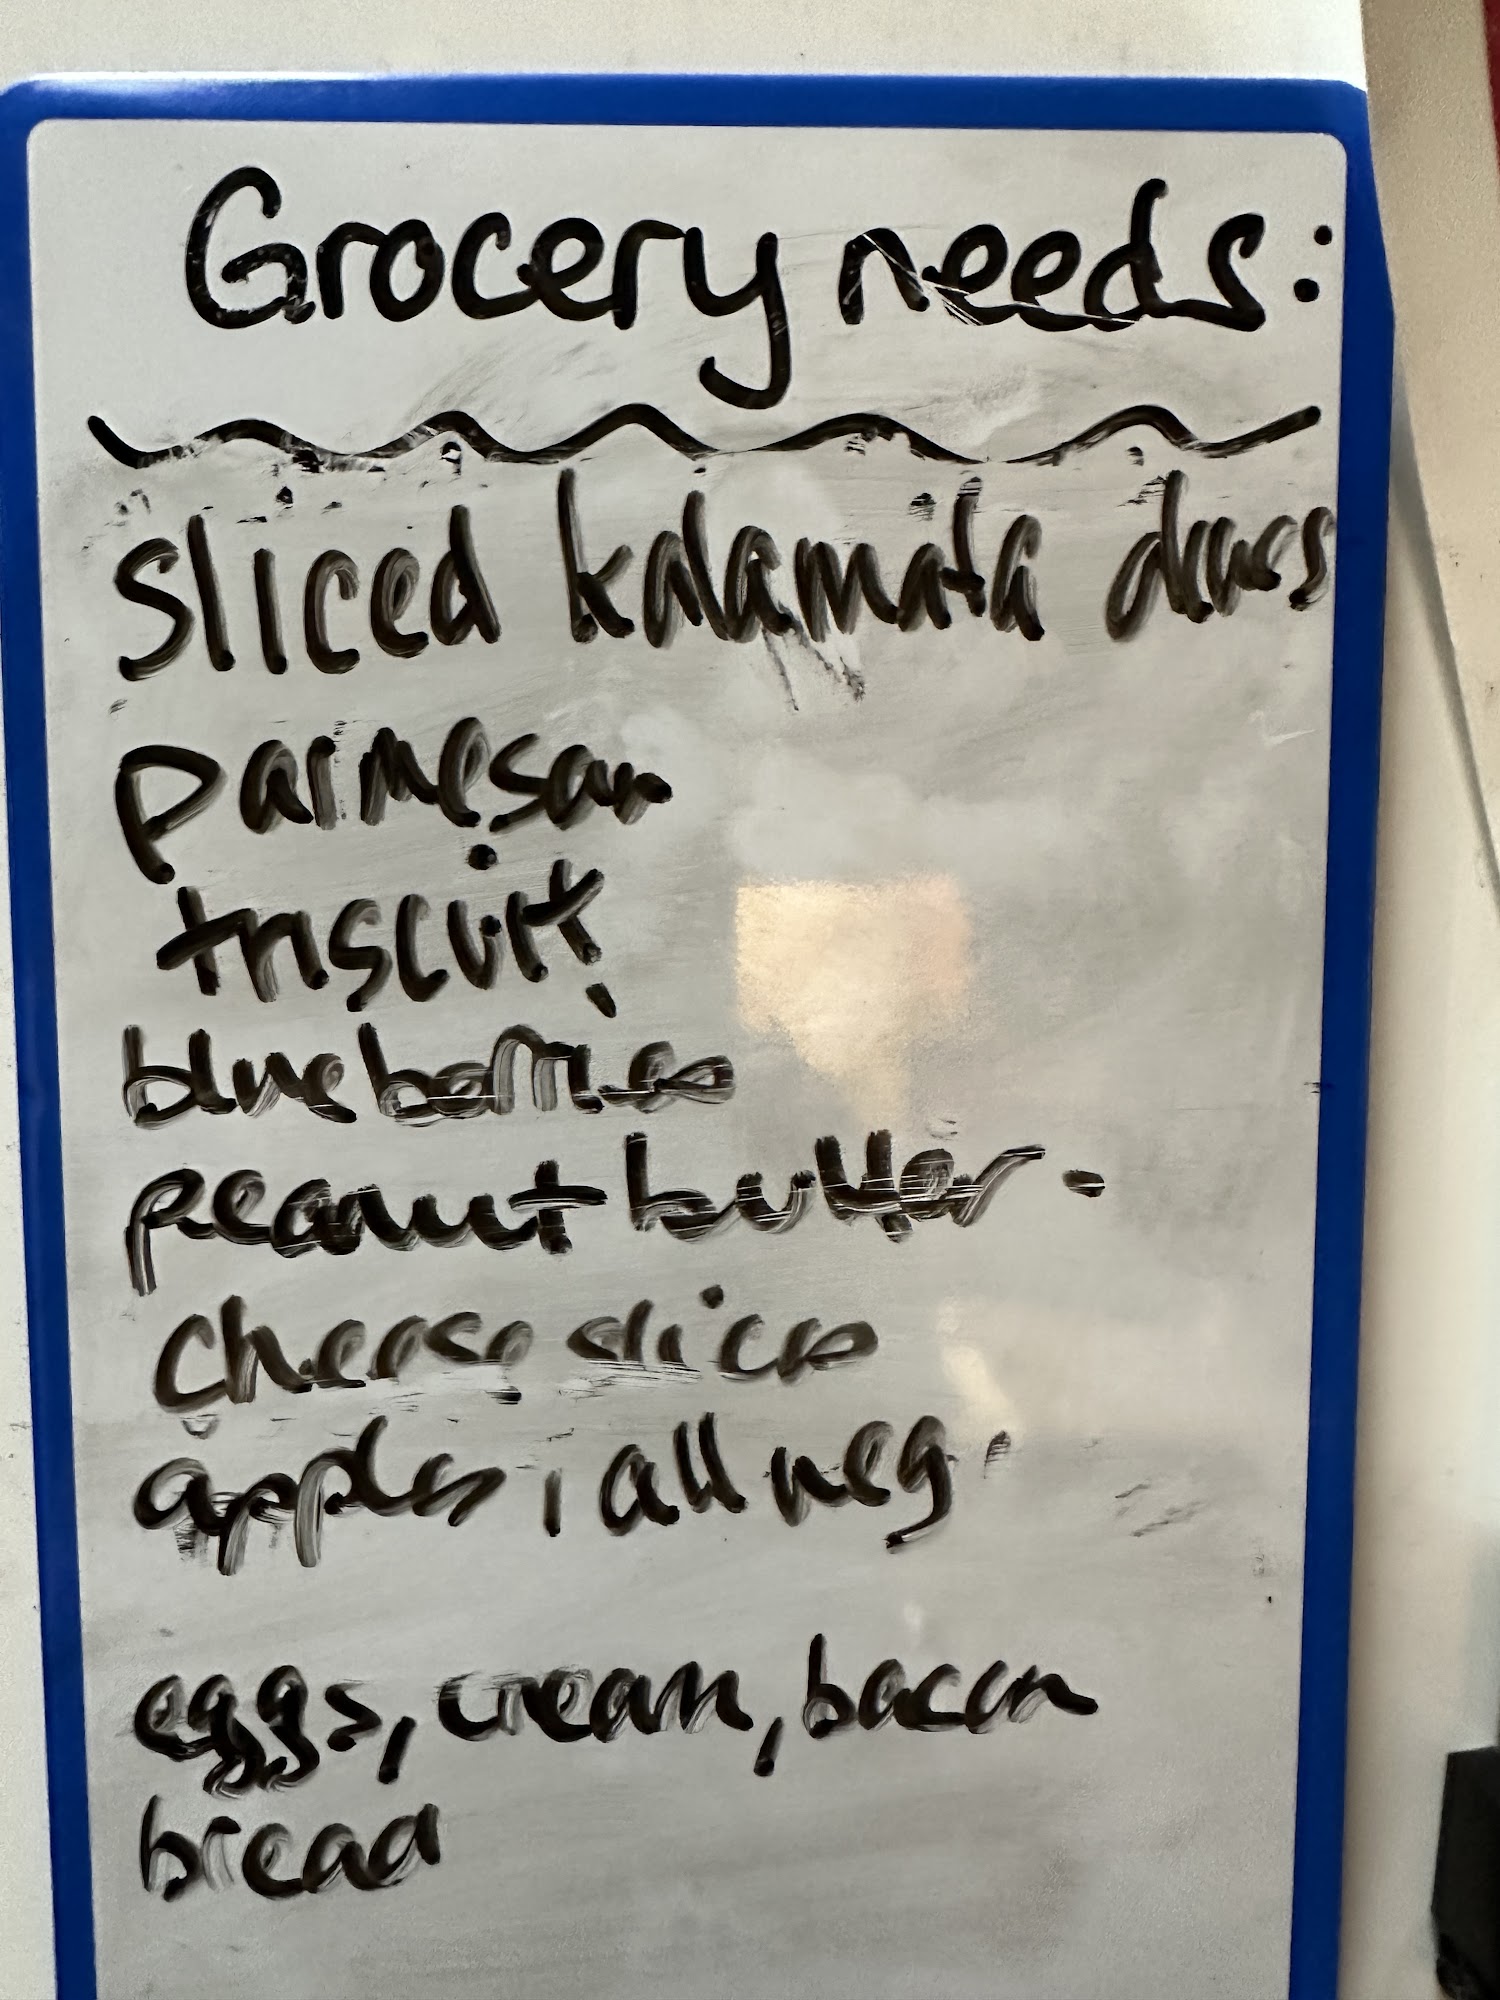 Grocery needs:
sliced kalamata olives
parmesan
triscuit
blueberries
peanut butter -
cheese slices
apples, all neg.
eggs, cream, bacon
bread